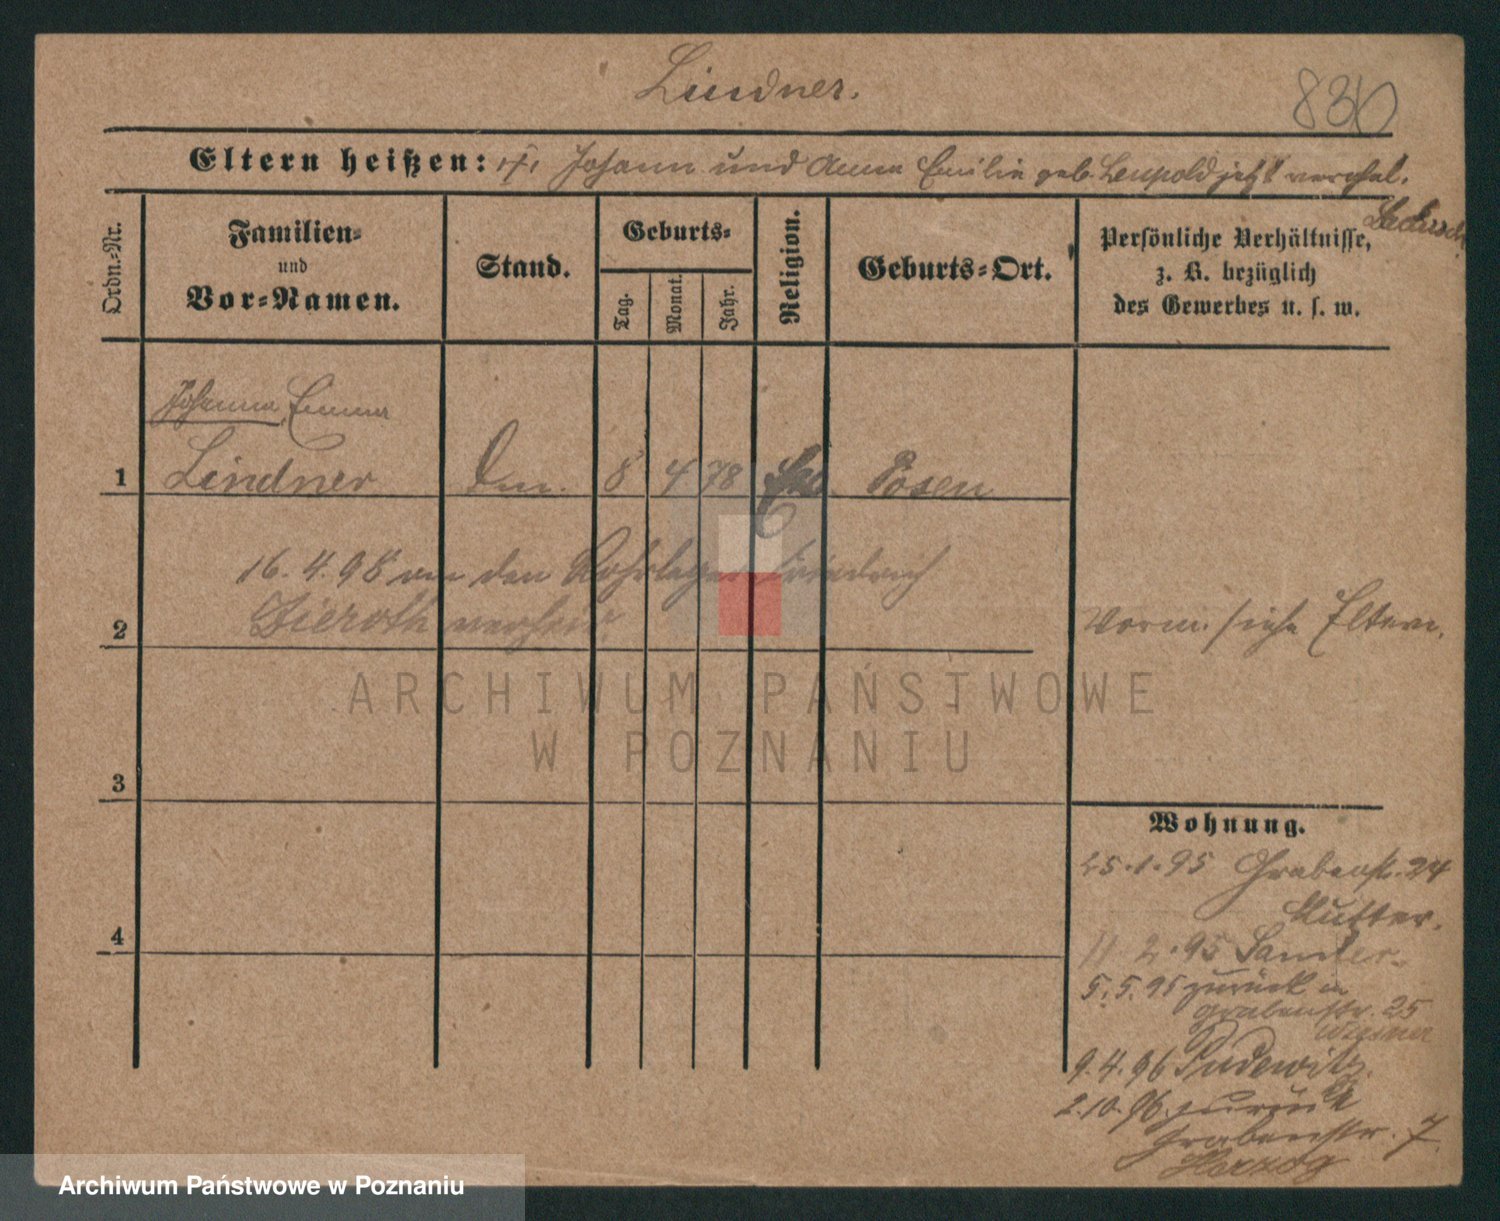 Lindner.
830
Eltern heißen: Johann und Anna Emilie geb. Leupold jetzt verehel.
Familien-
und
Vor-Namen.
Ordn.-Nr.
Stand.
Geburts-
Tag.
Monat.
Jahr.
Religion.
Geburts-Ort.
Persönliche Verhältnisse,
z. B. bezüglich
des Gewerbes u. s. w.
Johanna Emma
1 Lindner 8 4 78 Posen
16. 4. 98 an den Friedrich
2 Zieroth verheir.
Vorm. siehe Eltern.
ARCHIWUM PAŃSTWOWE
W POZNANIU
3
4
Wohnung.
25.1.95 Grabenstr. 24
Mutter.
11 2.95 Samter.
5. 5. 95 zurück in
Grabenstr. 25
9. 4. 96 Pudewitz.
2.10.96. zurück
Grabenstr. 7
Herzog
Archiwum Państwowe w Poznaniu